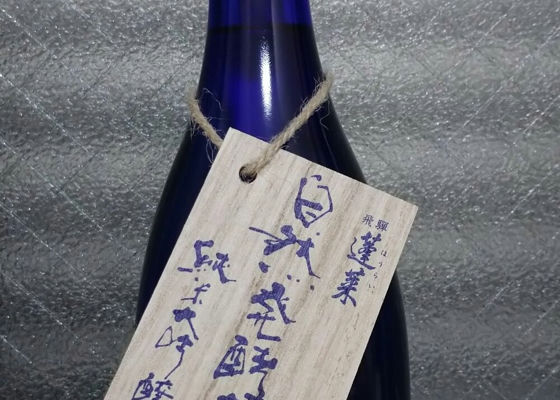 飛騨
蓬莱
ほうらい
自然発酵
純米吟醸